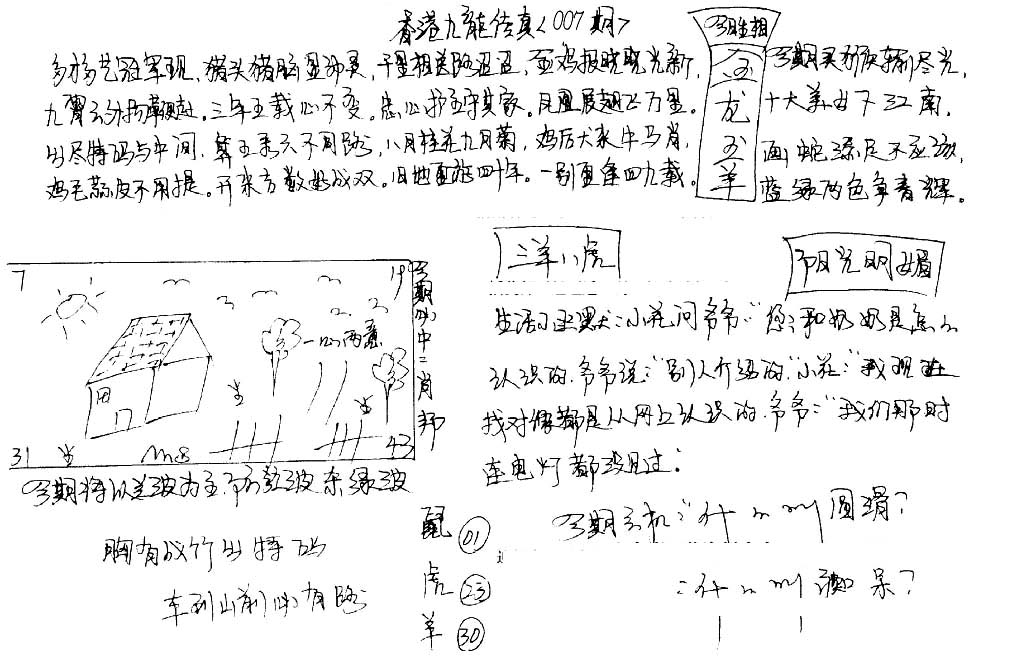 香港九龙传真<007期>
多才多艺冠军现,猪头猪脑显神灵,千里相送路迢迢,金鸡报晓晓光新,
九霄云外打翻身,三年五载心不变。忠心护主守其家。凤凰展翅飞万里。
出尽特码与中间,算五乘六不同路,八月桂花九月菊,鸡后大来牛马肖,
鸡毛蒜皮不用提。开来方数好成双。旧地重游四十年。一别重逢四九载。
今期生相
金龙玉羊
今期买码斩尽光,
十大美女下江南,
画蛇添足不应该,
蓝绿两色争春辉。
三羊八虎
阳光明媚
7
19
一心两意
31
43
今期必中三肖邦
今期特以兰波为主 市有红波 来绿波
生活小幽默:小花问爷爷:"您和奶奶是怎么
认识的.爷爷说:"别人介绍的."小花:"我现在
找对像都是从网上认识的.爷爷:"我们那时
连电灯都没见过.
今期玄机:什么叫圆滑?
:什么叫 呆?
胸有成竹出特码
车到山前必有路
鼠 01
虎 23
羊 30